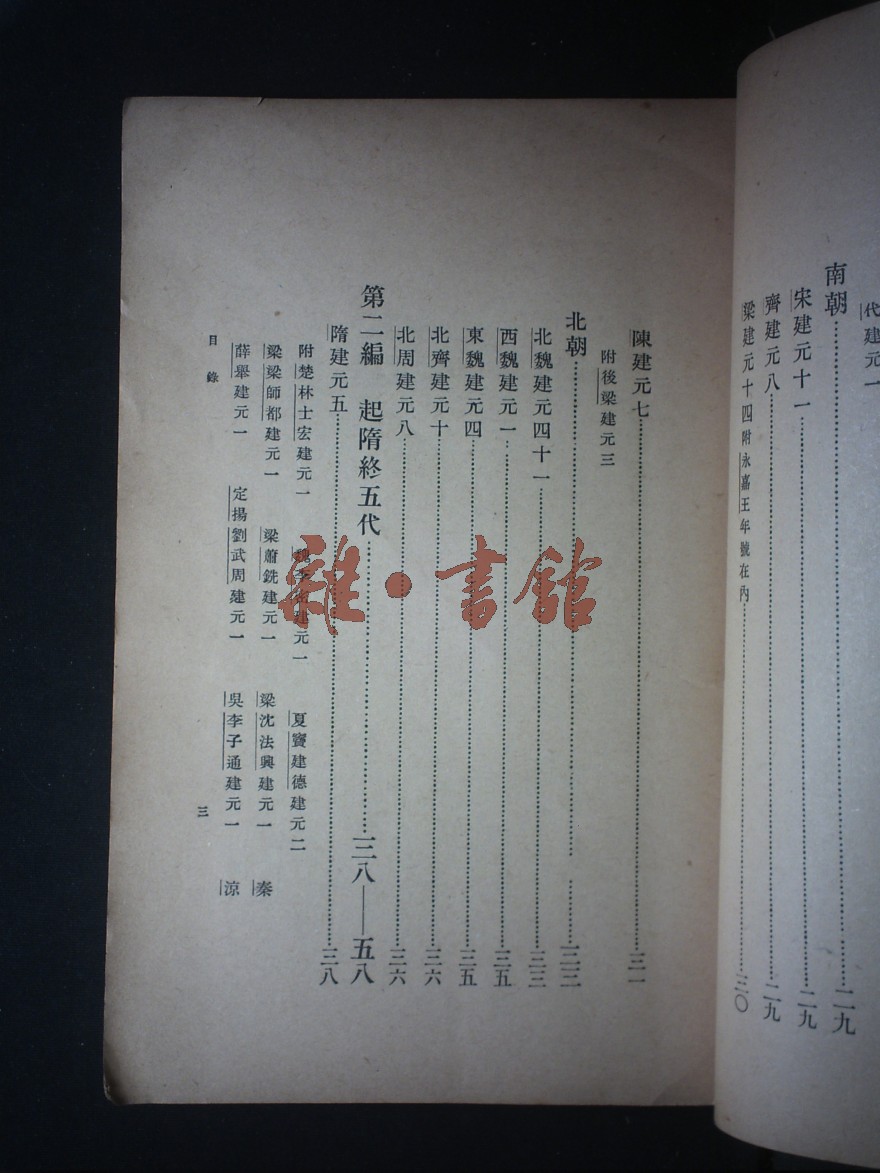 代建元一
南朝……二九
宋建元十一……二九
齊建元八……二九
梁建元十四附永嘉王年號在內……三〇
陳建元七……三一
附後梁建元三
北朝……三二
北魏建元四十一……三三
西魏建元一……三五
東魏建元四……三五
北齊建元十……三六
北周建元八……三六
第二編 起隋終五代……三八——五八
隋建元五……三八
附楚林士宏建元一 魏李密建元一 夏竇建德建元二
梁梁師都建元一 梁蕭銑建元一 梁沈法興建元一 秦
薛舉建元一 定揚劉武周建元一 吳李子通建元一 涼
目錄 三
雜·書館